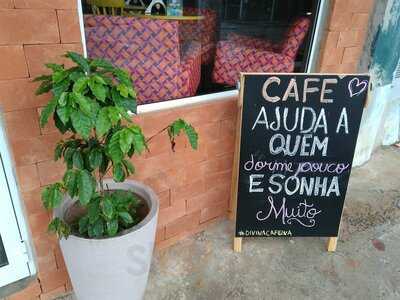 CAFE
AJUDA A
QUEM
dorme pouco
E SONHA
Muito
#DIVINACAFEINA